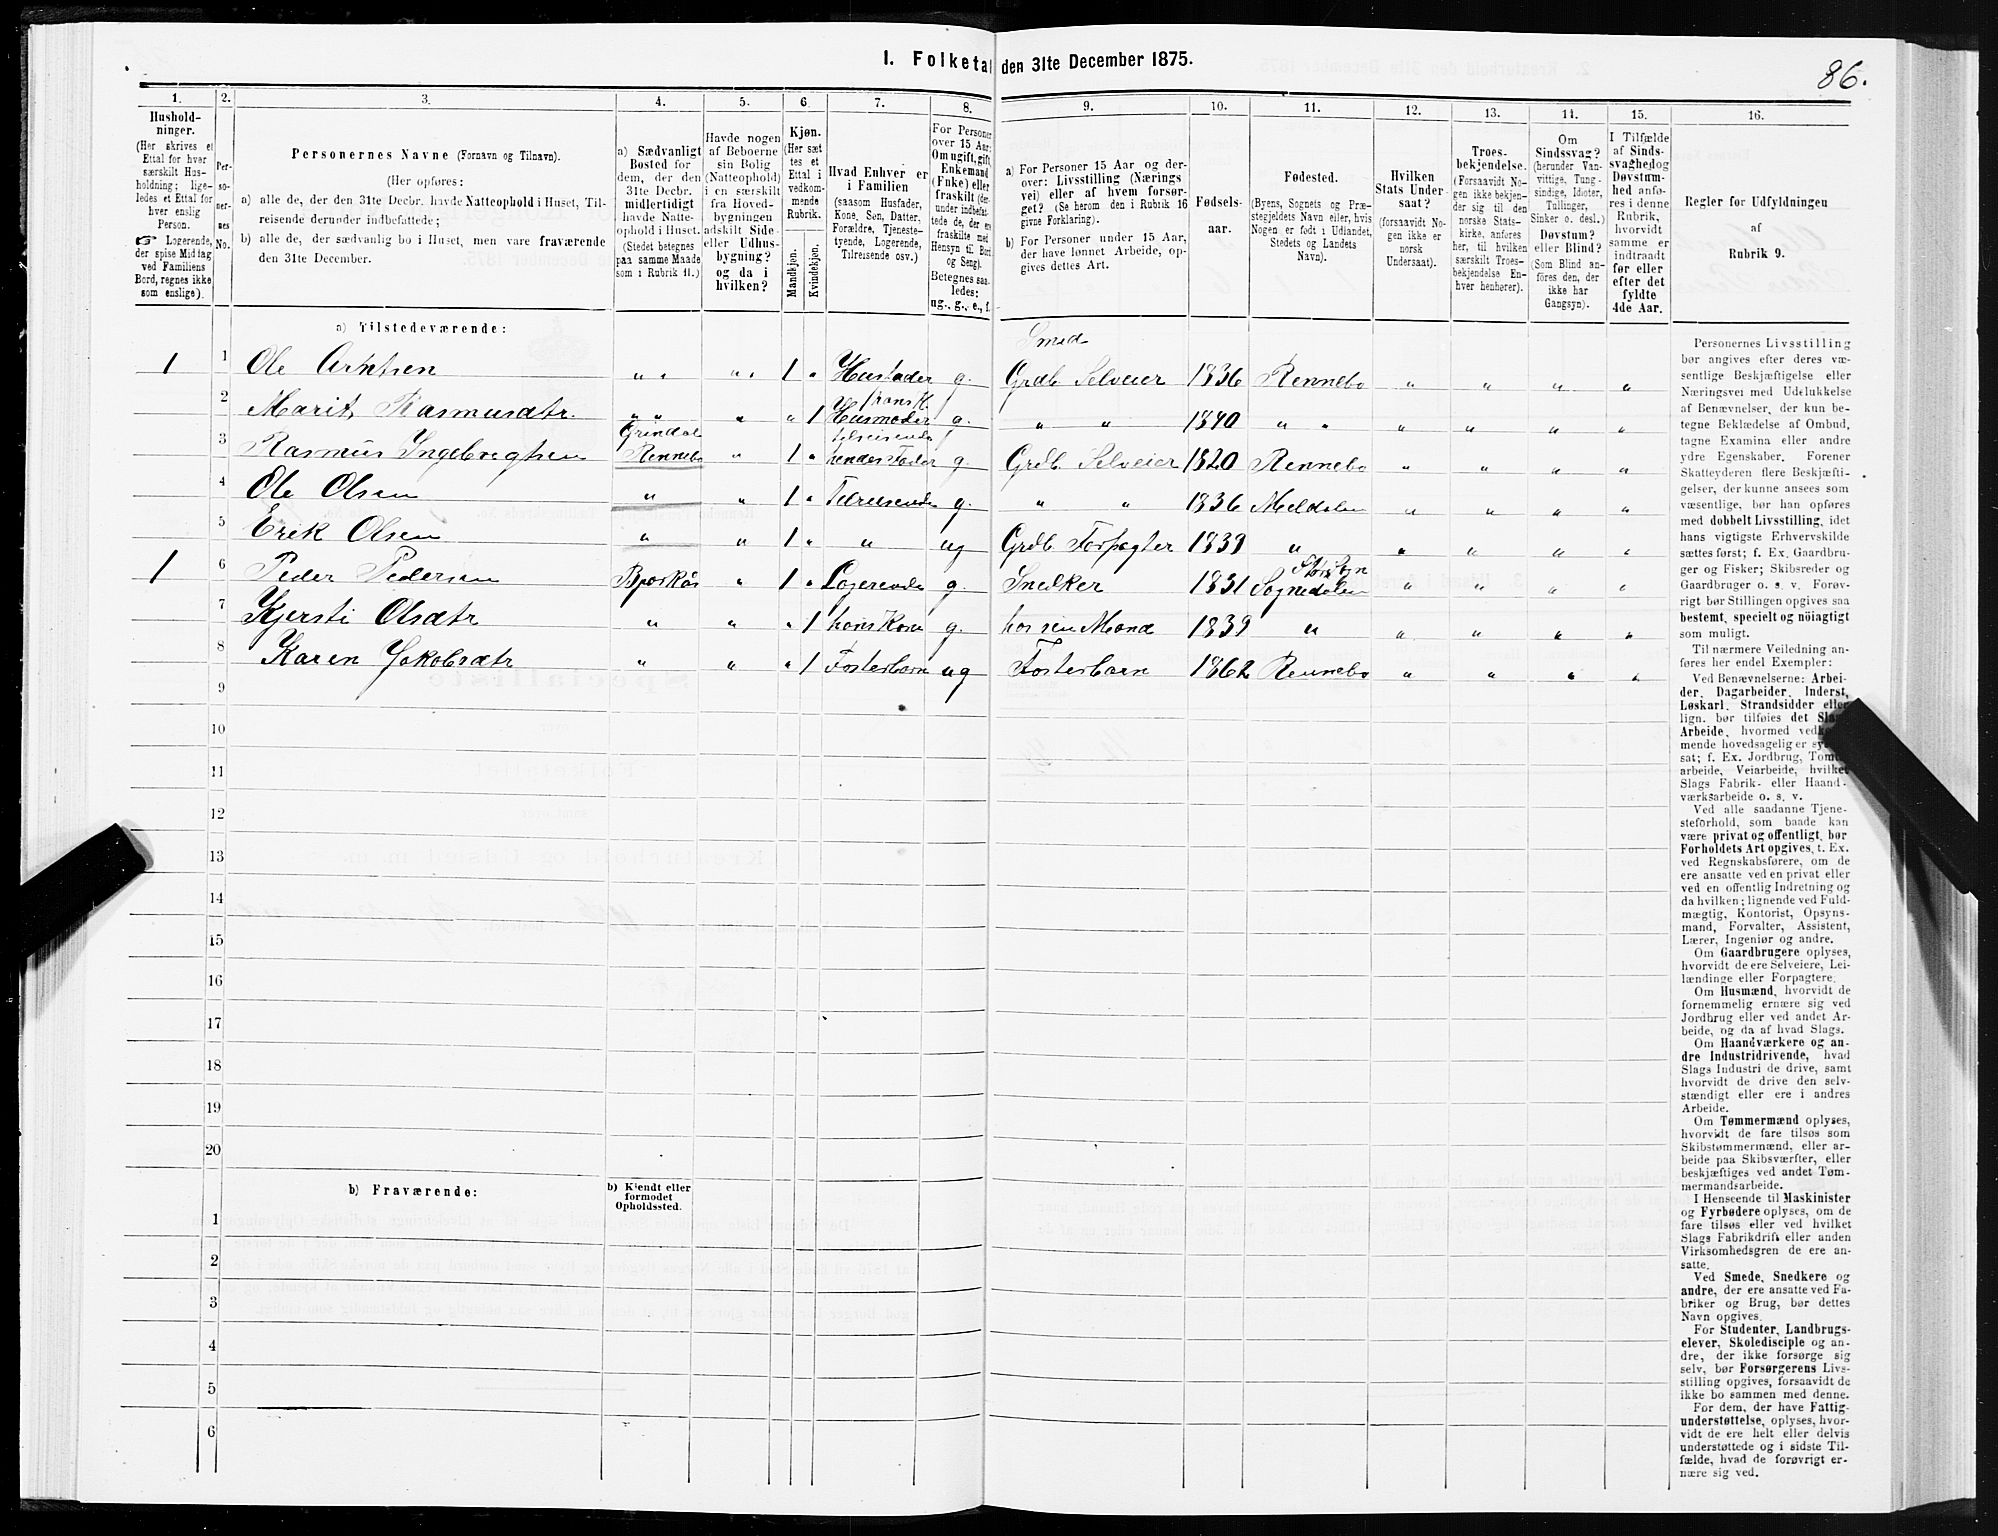 I. Folketal den 31te December 1875.
86.
1.
2.
3.
4.
5.
6.
7.
8.
9.
10.
11.
12.
13.
14.
15.
16.
Hushold-
ninger.
(Her skrives et
Ettal for hver
særskilt Hus-
holdning; lige-
ledes et Ettal for
hver enslig
Person.
☞ Logerende,
der spise Middag
ved Familiens
Bord, regnes ikke
som enslige).
Per-
so-
ner-
nes
No.
Personernes Navne (Fornavn og Tilnavn).
(Her opføres:
a) alle de, der den 31te Decbr. havde Natteophold i Huset, Til-
reisende derunder indbefattede;
b) alle de, der sædvanlig bo i Huset, men vare fraværende
den 31te December.
a) Sædvanligt
Bosted for
dem, der den
31te Decbr.
midlertidigt
havde Natte-
ophold i Huset.
(Stedet betegnes
paa samme Maade
som i Rubrik 11.)
Havde nogen
af Beboerne
sin Bolig
(Natteophold)
i en særskilt
fra Hoved-
bygningen
adskilt Side-
eller Udhus-
bygning?
og da i
hvilken?
Kjøn.
(Her sæt-
tes et
Ettal i
vedkom-
mende
Rubrik.
Mandkjøn.
Kvindekjøn.
Hvad Enhver er
i Familien
(saasom Husfader,
Kone, Søn, Datter,
Forældre, Tjeneste-
tyende, Logerende,
Tilreisende osv.)
For Personer
over 15 Aar:
Om ugift, gift,
Enkemand
(Enke) eller
fraskilt (der-
under indbefat-
tede de, der ere
fraskilte med
Hensyn til Bord
og Seng).
Betegnes saa-
ledes:
ug., g., e., f.
a) For Personer 15 Aar og der-
over: Livsstilling (Nærings-
vei) eller af hvem forsør-
get? (Se herom den i Rubrik 16
givne Forklaring).
b) For Personer under 15 Aar,
der have lønnet Arbeide, op-
gives dettes Art.
Fødsels-
aar.
Fødested.
(Byens, Sognets og Præ-
stegjeldets Navn eller, hvis
Nogen er født i Udlandet,
Stedets og Landets
Navn).
Hvilken
Stats Under-
saat?
(forsaavidt No-
gen ikke er
norsk
Undersaat).
Troes-
bekjendelse.
(Forsaavidt No-
gen ikke bekjen-
der sig til den
norske Stats-
kirke, anføres
her, til hvilken
særskilt Troes-
bekjendelse En-
hver henhører).
Om
Sindssvag?
(herunder Van-
vittige, Tung-
sindige, Idioter,
Tullinger,
Sinker o. desl.)
Døvstum?
eller Blind?
(Som Blind an-
føres den, der
ikke har
Gangsyn).
I Tilfælde
af Sinds-
svaghed og
Døvstum-
hed anfø-
res i denne
Rubrik,
hvorvidt
samme er
indtraadt
før eller
efter det
fyldte
4de Aar.
Regler for Udfyldningen
af
Rubrik 9.
a) Tilstedeværende:
Smed
1 1 Ole Arntsen " " " " 1 " Husfader g. Grdb Selveier 1836 Rennebo " " " "
hans K.
2 Marit Rasmusdtr. " " " " 1 Husmoder g. " " 1840 " " " " " "
Grindal tilreisende
3 Rasmus Ingebregtsen Rennebo " 1 " hendes Fader g. Grdb Selveier 1820 Rennebo " " " "
4 Ole Olsen " " 1 " Tilreisende g. " " 1836 Meldalen " " " "
5 Erik Olsen " " 1 " " ug Grdb Forpagter 1839 " " " " "
1 6 Peder Pedersen Bjerkås " 1 " Logerende g. Snedker 1831 Sognedalen " " " "
7 Kjersti Olsdtr " " " 1 hans Kone g. hos sin Mand 1839 " " " " "
8 Karen Jakobsdtr " " " 1 Fosterbarn ug Fosterbarn 1862 Rennebo " " " "
9
10
11
12
13
14
15
16
17
18
19
20
b) Fraværende:
b) Kjendt eller
formodet
Opholdssted.
1
2
3
4
5
6
Personernes Livsstilling
bør angives efter deres væ-
sentlige Beskjæftigelse eller
Næringsvei med Udelukkelse
af Benævnelser, der kun be-
tegne Beklædelse af Ombud,
tagne Examina eller andre
ydre Egenskaber. Forener
Skatteyderen flere Beskjæfti-
gelser, der kunne ansees som
væsentlige, bør han opføres
med dobbelt Livsstilling, idet
hans vigtigste Erhvervskilde
sættes først; f. Ex. Gaardbru-
ger og Fisker; Skibsreder og
Gaardbruger o. s. v. Forøv-
rigt bør Stillingen opgives saa
bestemt, specielt og nöiagtigt
som muligt.
Til nærmere Veiledning an-
føres her endel Exempler:
Ved Benævnelserne: Arbei-
der, Dagarbeider, Inderst,
Løskarl, Strandsidder eller
lign. bør tilføies det Slags
Arbeide, hvormed vedkom-
mende hovedsagelig er syssel-
sat; f. Ex. Jordbrug, Tomte-
arbeide, Veiarbeide, hvilket
Slags Fabrik- eller Haand-
værksarbeide o. s. v.
Ved alle saadanne Tjene-
steforhold, som baade kan
være privat og offentligt, bør
Forholdets Art opgives, t. Ex.
ved Regnskabsførere, om de
ere ansatte ved en privat eller
ved en offentlig Indretning og
da hvilken; lignende ved Fuld-
mægtig, Kontorist, Opsyns-
mand, Forvalter, Assistent,
Lærer, Ingeniør og andre.
Om Gaardbrugere oplyses,
hvorvidt de ere Selveiere, Lei-
lændinge eller Forpagtere.
Om Husmænd, hvorvidt de
fornemmelig ernære sig ved
Jordbrug eller ved andet Ar-
beide, og da af hvad Slags.
Om Haandværkere og an-
dre Industridrivende, hvad
Slags Industri de drive, samt
hvorvidt de drive den selv-
stændigt eller ere i andres
Arbeide.
Om Tømmermænd oplyses,
hvorvidt de fare tilsøs som
Skibstømmermænd, eller ar-
beide paa Skibsværfter, eller
beskjæftiges ved andet Tøm-
mermandsarbeide.
I Henseende til Maskinister
og Fyrbødere oplyses, om de
fare tilsøs eller ved hvilket
Slags Fabrikdrift eller anden
Virksomhedsgren de ere an-
satte.
Ved Smede, Snedkere og
andre, der ere ansatte ved Fa-
briker og Brug, bør dettes
Navn opgives.
For Studenter, Landbrugs-
elever, Skoledisciple og an-
dre, der ikke forsørge sig
selv, bør Forsørgerens Livs-
stilling opgives, forsaavidt de
ikke bo sammen med denne.
For dem, der have Fattig-
understøttelse, oplyses, hvor-
vidt de ere helt eller delvis
understøttede og i sidste Til-
fælde, hvad de forøvrigt er-
nære sig ved.